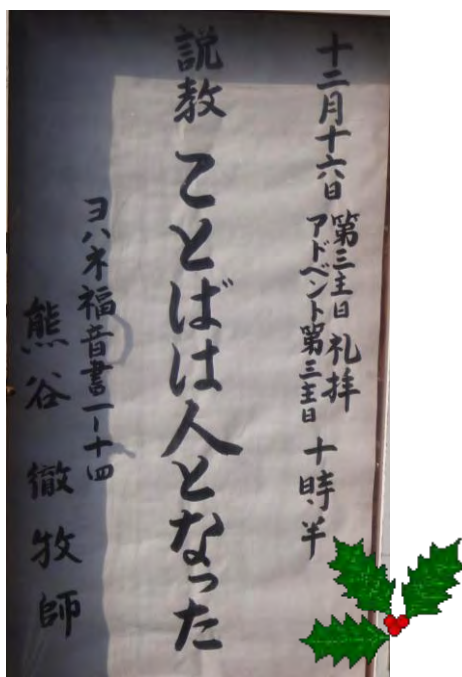 十二月十六日 第三主日 礼拝 十時半
アドベント第三主日
説教 ことばは人となった
ヨハネ福音書一ー十四
熊谷 徹 牧師